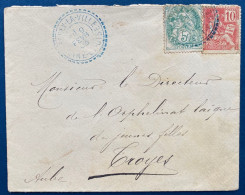 10
Monsieur le Directeur
de l'Orphelinat laïque
de jeunes filles
Troyes
Aube